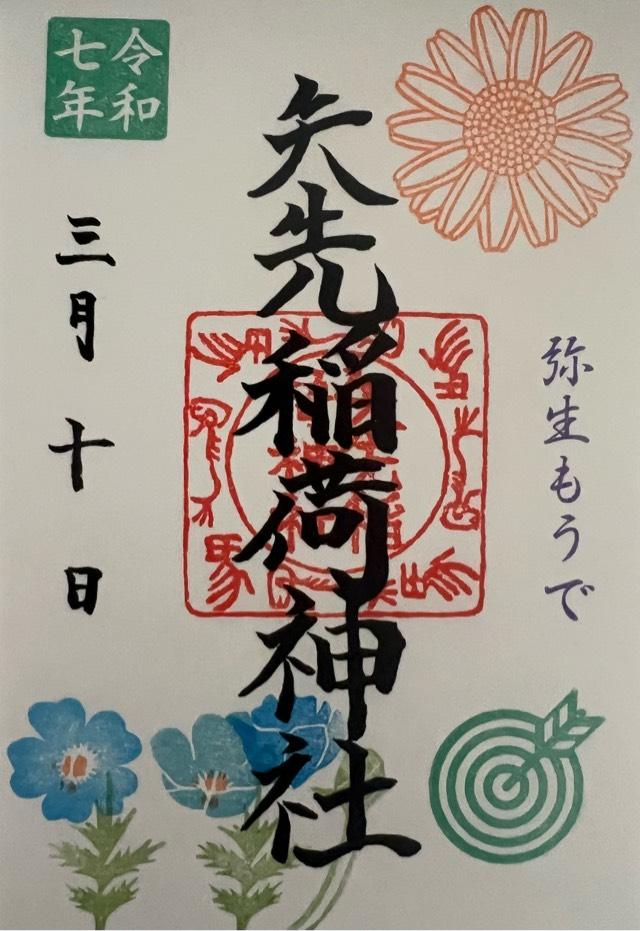 弥生もうで
矢先稲荷神社
令和
七年
三月十日